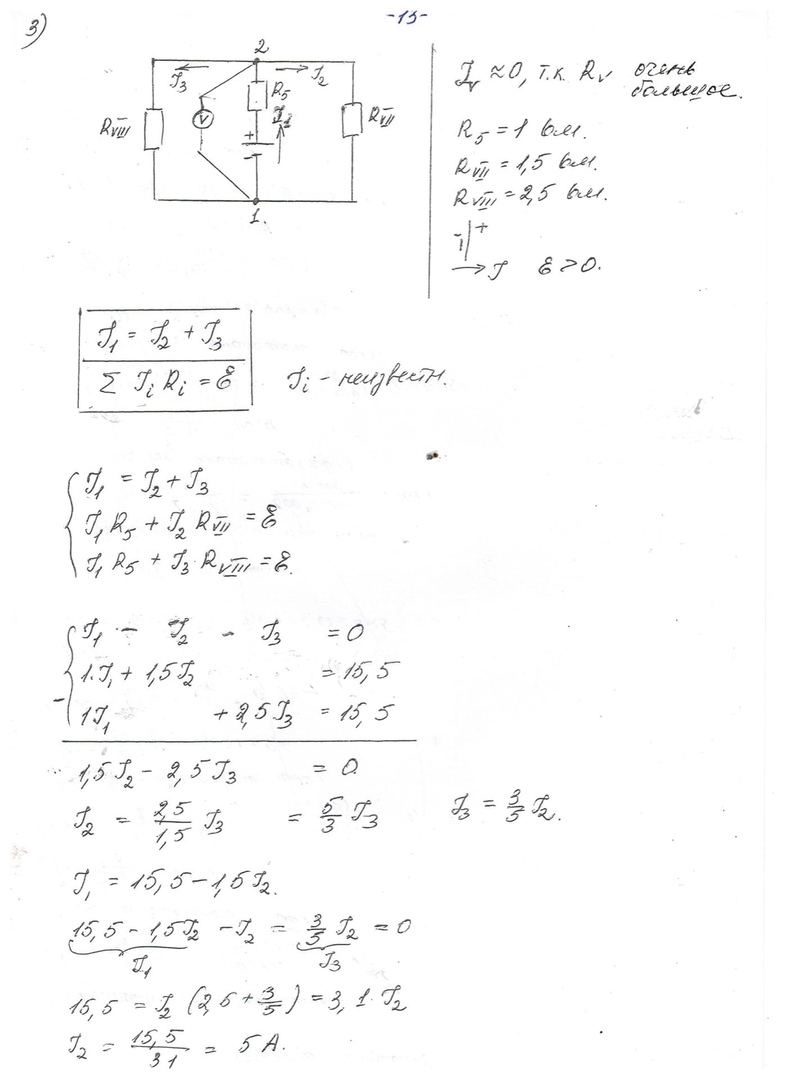 -15-
3)
2
J3
J2
R5
J1
RVIII
V
RVII
+
-
1.
Jv ≈ 0, т.к. Rv очень
большое.
R5 = 1 Ом.
RVII = 1,5 Ом.
RVIII = 2,5 Ом.
- | +
→ J ℰ > 0.
J1 = J2 + J3
Σ Ji Ri = ℰ Ji - неизвестн.
J1 = J2 + J3
J1 R5 + J2 RVII = ℰ
J1 R5 + J3 · RVIII = ℰ.
J1 - J2 - J3 = 0
1·J1 + 1,5J2 = 15,5
- 1J1 + 2,5J3 = 15,5
1,5J2 - 2,5J3 = 0.
J2 = 2,5/1,5 J3 = 5/3 J3 J3 = 3/5 J2.
J1 = 15,5 - 1,5J2.
15,5 - 1,5J2 - J2 = 3/5 J2 = 0
J1 J3
15,5 = J2 (2,5 + 3/5) = 3,1·J2
J2 = 15,5/31 = 5 А.